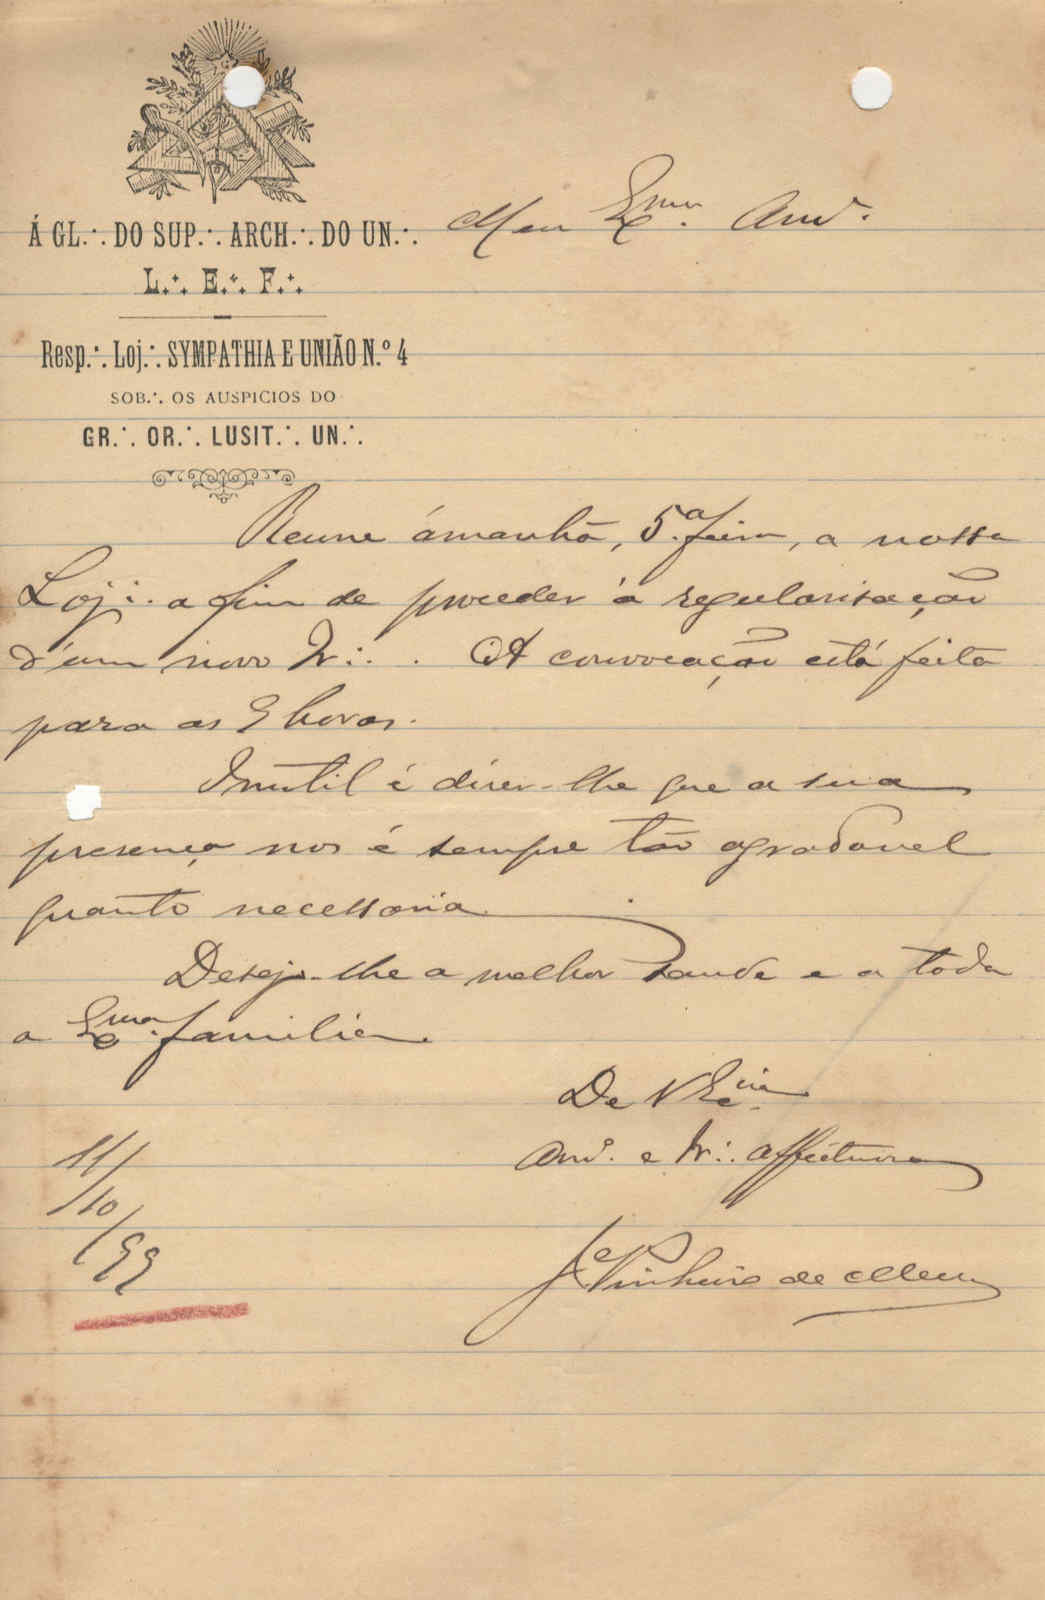 Á GL.·. DO SUP.·. ARCH.·. DO UN.·.
L.·. E.·. F.·.
Resp.·. Loj.·. SYMPATHIA E UNIÃO N.º 4
SOB.·. OS AUSPICIOS DO
GR.·. OR.·. LUSIT.·. UN.·.
Meu Exmo. Amº.
Reune ámanhã, 5.ª feira, a nossa
Loj.·. a fim de proceder á regularisação
d'um novo Ir.·. . A convocação está feita
para as 9 horas.
Inutil é dizer-lhe que a sua
presença nos é sempre tão agradavel
quanto necessaria.
Desejo-lhe a melhor saude e a toda
a Exma. familia.
De V Excia.
Amº. e Ir.·. affectuoso
Je Pinheiro de Mello
11/10/99